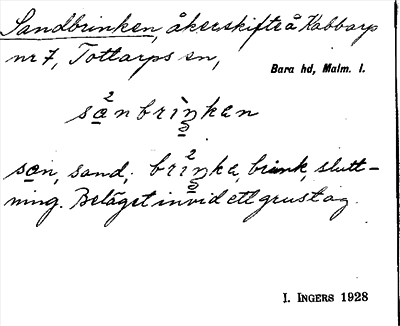 Sandbrinken, åkerskifte å Kabbarp
nr 7, Tottarps sn,
Bara hd, Malm. l.
sa̲²nbrìŋ̲kən
sa̲n, sand; bri²ŋ̲ka, brink, slutt-
ning. Beläget invid ett grustag.
I. INGERS 1928